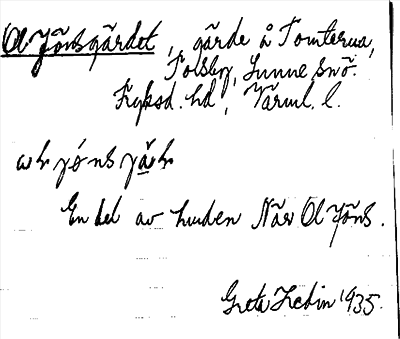 Ol Jönsgärdet, gärde å Tomterna,
Tolsby, Sunne snö.
Fryksd. hd, Värml. l.
En del av hunden När Ol Jöns.
Greta Hedin 1935.